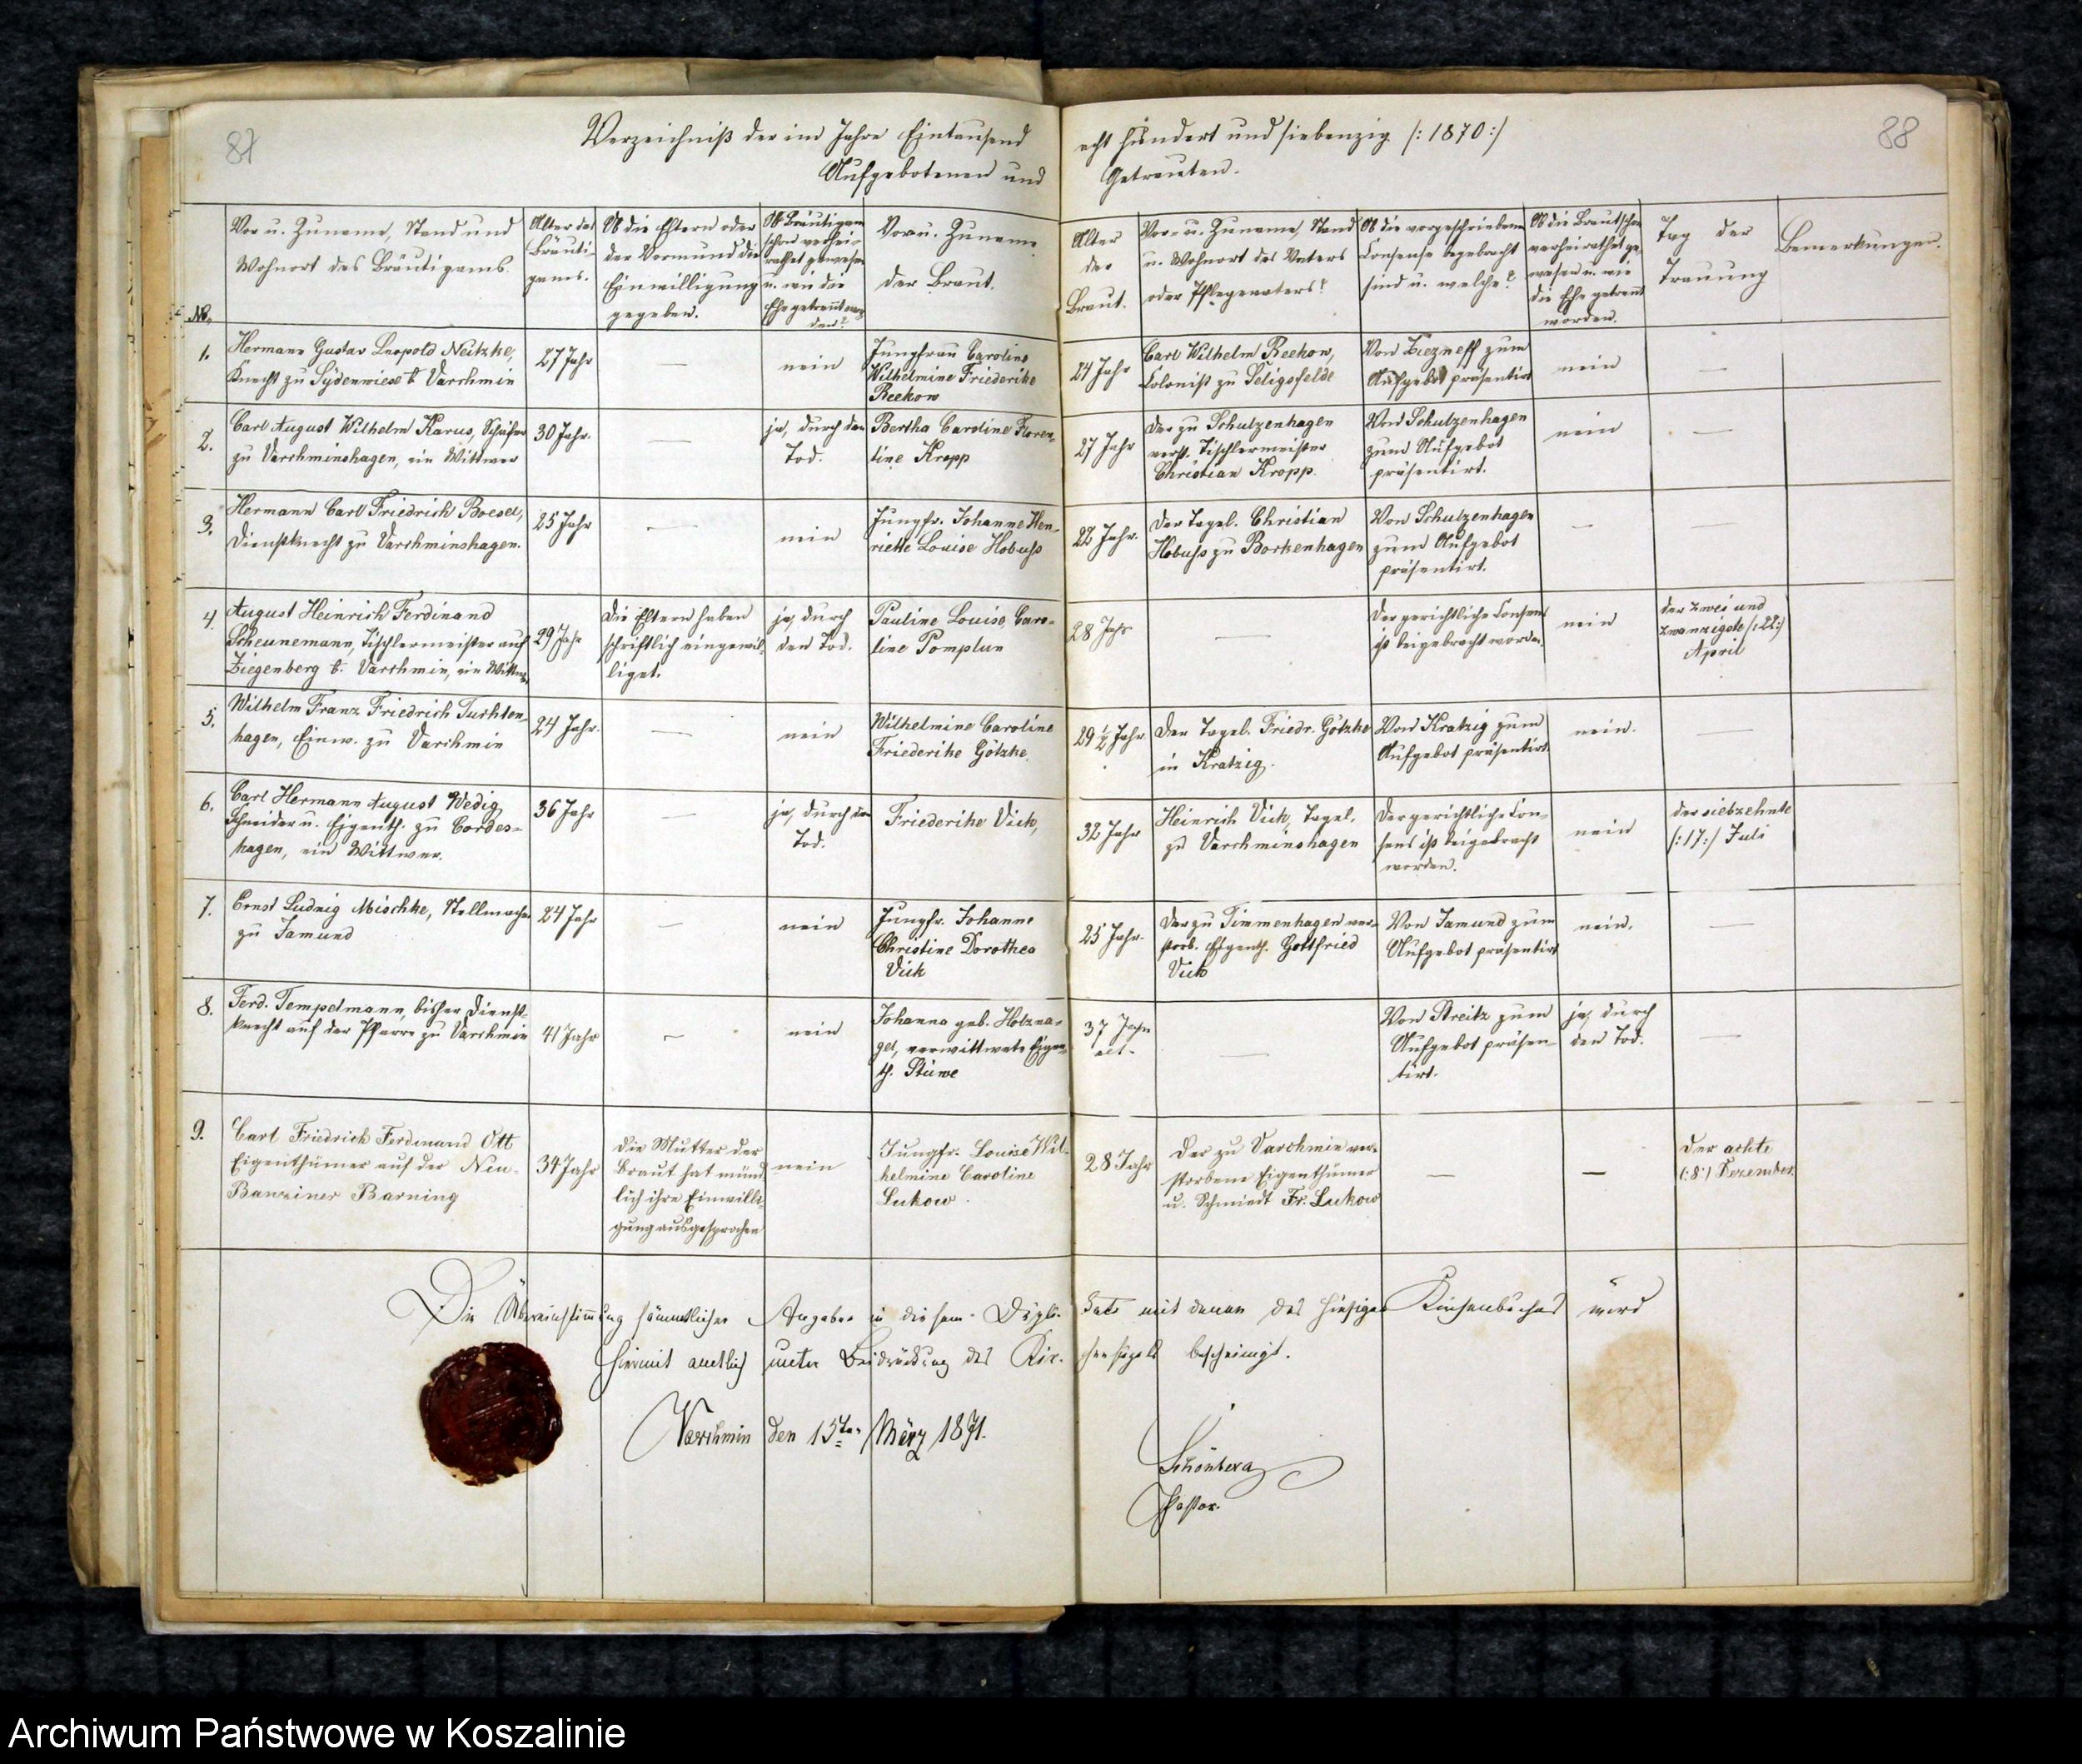 87
88
Verzeichniß der im Jahre Eintausend acht hundert und siebenzig /: 1870 :/
Aufgebotenen und Getrauten.
No.
Vor u. Zuname, Stand und
Wohnort des Bräutigams.
Alter des
Bräuti-
gams.
Ob die Eltern oder
der Vormund die
Einwilligung
gegeben.
Ob Bräutigam
schon verhei-
rathet gewesen
u. wie die
Ehe getrennt wor-
den?
Vor u. Zuname
der Braut.
Alter
der
Braut.
Vor- u. Zuname, Stand
u. Wohnort des Vaters
oder Pflegevaters?
Ob die vorgeschriebenen
Consense beigebracht
sind u. welche?
Ob die Braut schon
verheirathet ge-
wesen u. wie
die Ehe getrennt
worden.
Tag der
Trauung
Bemerkungen.
1.
Hermann Gustav Leopold Neitzke,
Knecht zu Sydenwiese b. Varchmin
27 Jahr
—
nein
Jungfrau Caroline
Wilhelmine Friederike
Reekow
24 Jahr
Carl Wilhelm Reekow,
Colonist zu Seligsfelde
Von zum
Aufgebot präsentirt
nein
—
2.
Carl August Wilhelm Karus, Schäfer
zu Varchminshagen, ein Wittwer
30 Jahr.
—
ja, durch den
Tod.
Bertha Caroline Floren-
tine Kropp
27 Jahr
Der zu Schulzenhagen
verst. Tischlermeister
Christian Kropp.
Von Schulzenhagen
zum Aufgebot
präsentirt.
nein
—
3.
Hermann Carl Friedrich Boesel,
Dienstknecht zu Varchminshagen.
25 Jahr
—
nein
Jungfr. Johanne Hen-
riette Louise Hobuss
22 Jahr.
Der Tagel. Christian
Hobuss zu Borkenhagen
Von Schulzenhagen
zum Aufgebot
präsentirt.
—
4.
August Heinrich Ferdinand
Scheunemann, Tischlermeister auf
Ziegenberg b. Varchmin, ein Wittwer
29 Jahr
Die Eltern haben
schriftlich eingewil-
liget.
ja, durch
den Tod.
Pauline Louise Caro-
line Pomplun
28 Jahr
—
Der gerichtliche Consens
ist beigebracht worden.
nein
der zwei und
zwanzigste /: 22 :/
April
5.
Wilhelm Franz Friedrich Tuchten-
hagen, Einw. zu Varchmin
24 Jahr.
—
nein
Wilhelmine Caroline
Friederike Götzke.
29 ½ Jahr
Der Tagel. Friedr. Götzke
in Kratzig.
Von Kratzig zum
Aufgebot präsentirt
nein.
—
6.
Carl Hermann August Wedig,
Schneider u. Eigenth. zu Cordes-
hagen, ein Wittwer.
36 Jahr
—
ja, durch den
Tod.
Friederike Vick,
32 Jahr
Heinrich Vick, Tagel.
zu Varchminshagen
Der gerichtliche Con-
sens ist beigebracht
worden.
nein
der siebzehnte
/: 17 :/ Juli
7.
Ernst Ludwig Mischke, Stellmacher
zu Jamund
24 Jahr
—
nein
Jungfr. Johanne
Christine Dorothea
Vick
25 Jahr.
Der zu Timmenhagen ver-
storb. Eigenth. Gottfried
Vick
Von Jamund zum
Aufgebot präsentirt
nein.
—
8.
Ferd. Tempelmann, bisher Dienst-
knecht auf der Pfarre zu Varchmin
41 Jahr
—
nein
Johanna geb. Holzna-
gel, verwittwete Eigen-
th. Stüwe
37 Jahr
alt.
—
Von Streitz zum
Aufgebot präsen-
tirt.
ja, durch
den Tod.
—
9.
Carl Friedrich Ferdinand Ott
Eigenthümer auf der Neu-
Banziner Barning
34 Jahr
Die Mutter der
Braut hat münd-
lich ihre Einwilli-
gung ausgesprochen
nein
Jungfr. Louise Wil-
helmine Caroline
Lukow.
28 Jahr
Der zu Varchmin ver-
storbene Eigenthümer
u. Schmiedt Fr. Lukow
—
—
Der achte
(:8:) Dezember.
Die Übereinstimmung sämmtlicher Angaben in diesem Dupli-kate mit denen des hiesigen Kirchenbuches wird
hiermit amtlich unter Beidrückung des Kir-chensiegels bescheinigt.
Varchmin den 15ten März 1871.
Schönberg
Pastor.
Archiwum Państwowe w Koszalinie